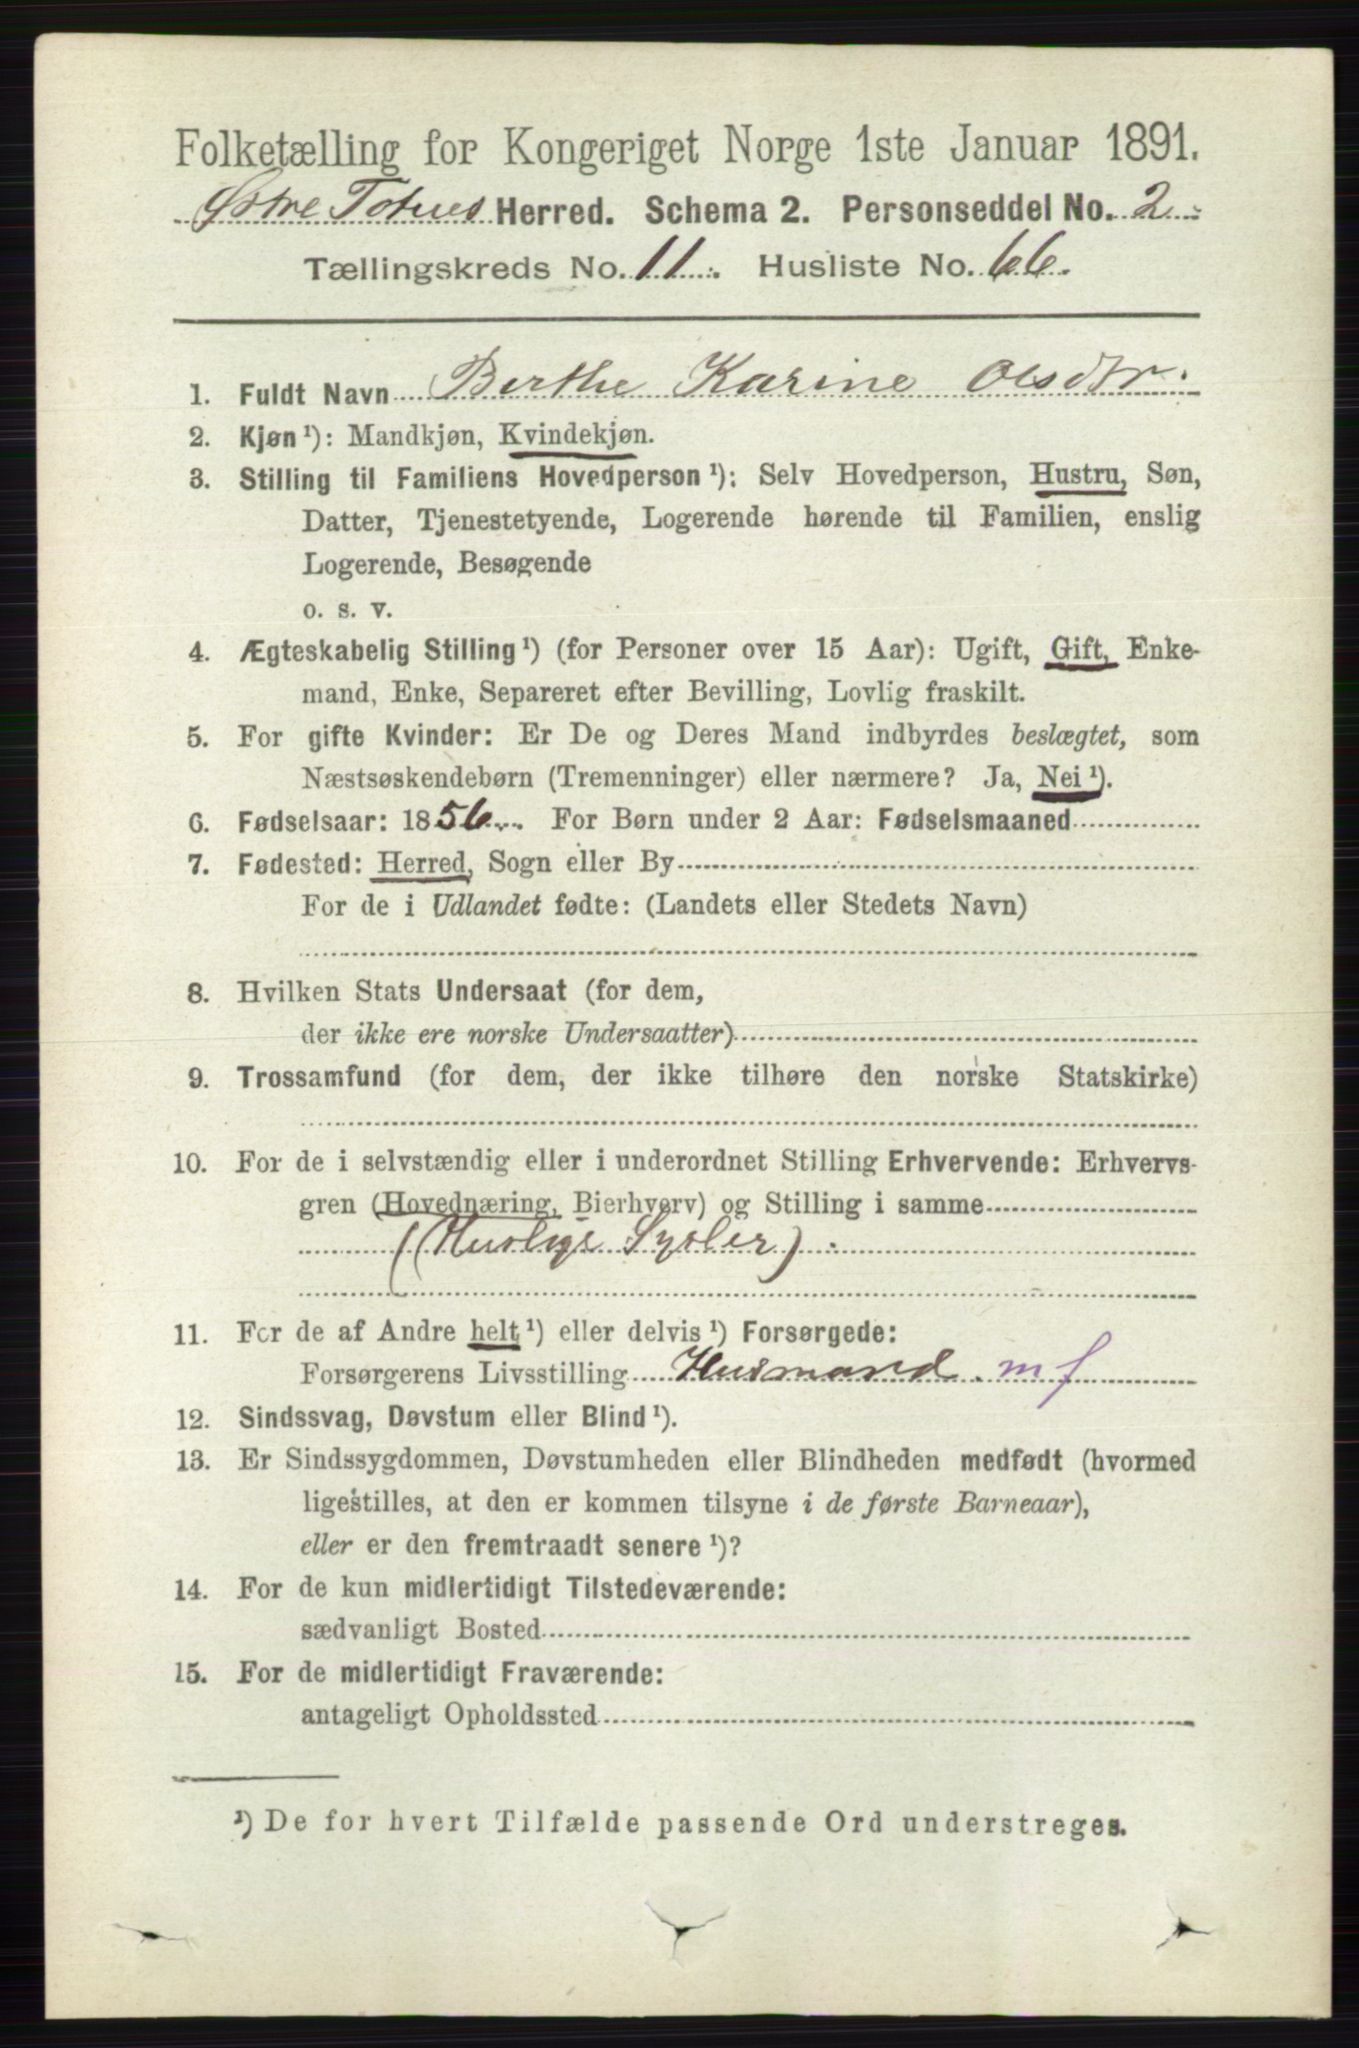 Folketælling for Kongeriget Norge 1ste Januar 1891.
Østre Totnes Herred. Schema 2. Personseddel No. 2.
Tællingskreds No. 11. Husliste No. 66.
1. Fuldt Navn Berthe Karine Olsdtr.
2. Kjøn ¹): Mandkjøn, Kvindekjøn.
3. Stilling til Familiens Hovedperson ¹): Selv Hovedperson, Hustru, Søn,
Datter, Tjenestetyende, Logerende hørende til Familien, enslig
Logerende, Besøgende
o. s. v.
4. Ægteskabelig Stilling ¹) (for Personer over 15 Aar): Ugift, Gift, Enke-
mand, Enke, Separeret efter Bevilling, Lovlig fraskilt.
5. For gifte Kvinder: Er De og Deres Mand indbyrdes beslægtet, som
Næstsøskendebørn (Tremenninger) eller nærmere? Ja, Nei ¹).
6. Fødselsaar: 1856. For Børn under 2 Aar: Fødselsmaaned
7. Fødested: Herred, Sogn eller By
For de i Udlandet fødte: (Landets eller Stedets Navn)
8. Hvilken Stats Undersaat (for dem,
der ikke ere norske Undersaatter)
9. Trossamfund (for dem, der ikke tilhøre den norske Statskirke)
10. For de i selvstændig eller i underordnet Stilling Erhvervende: Erhvervs-
gren (Hovednæring, Bierhverv) og Stilling i samme
(Huslige Sysler).
11. For de af Andre helt ¹) eller delvis ¹) Forsørgede:
Forsørgerens Livsstilling Husmand. mf
12. Sindssvag, Døvstum eller Blind ¹).
13. Er Sindssygdommen, Døvstumheden eller Blindheden medfødt (hvormed
ligestilles, at den er kommen tilsyne i de første Barneaar),
eller er den fremtraadt senere ¹)?
14. For de kun midlertidigt Tilstedeværende:
sædvanligt Bosted
15. For de midlertidigt Fraværende:
antageligt Opholdssted
¹) De for hvert Tilfælde passende Ord understreges.